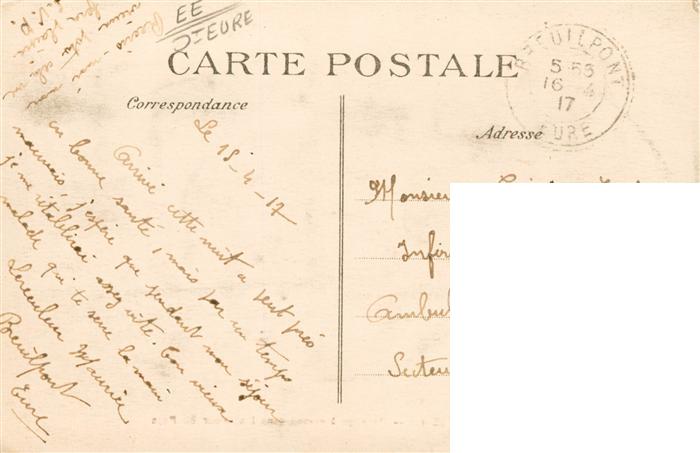 EE
D=EURE
CARTE POSTALE
BREUILPONT
5-53
16-4
17
EURE
Correspondance
Adresse
Le 15-4-17
Arrivé cette nuit à peu près
en bonne santé, mais par un temps
mauvais, j'espère que pendant mon séjour
je me rétablirai assez vite. Ton vieux
malade qui te serre la main
Maurice
Breuilpont
Eure
Monsieur
Infir
Ambul
Secteu
S.V.P.